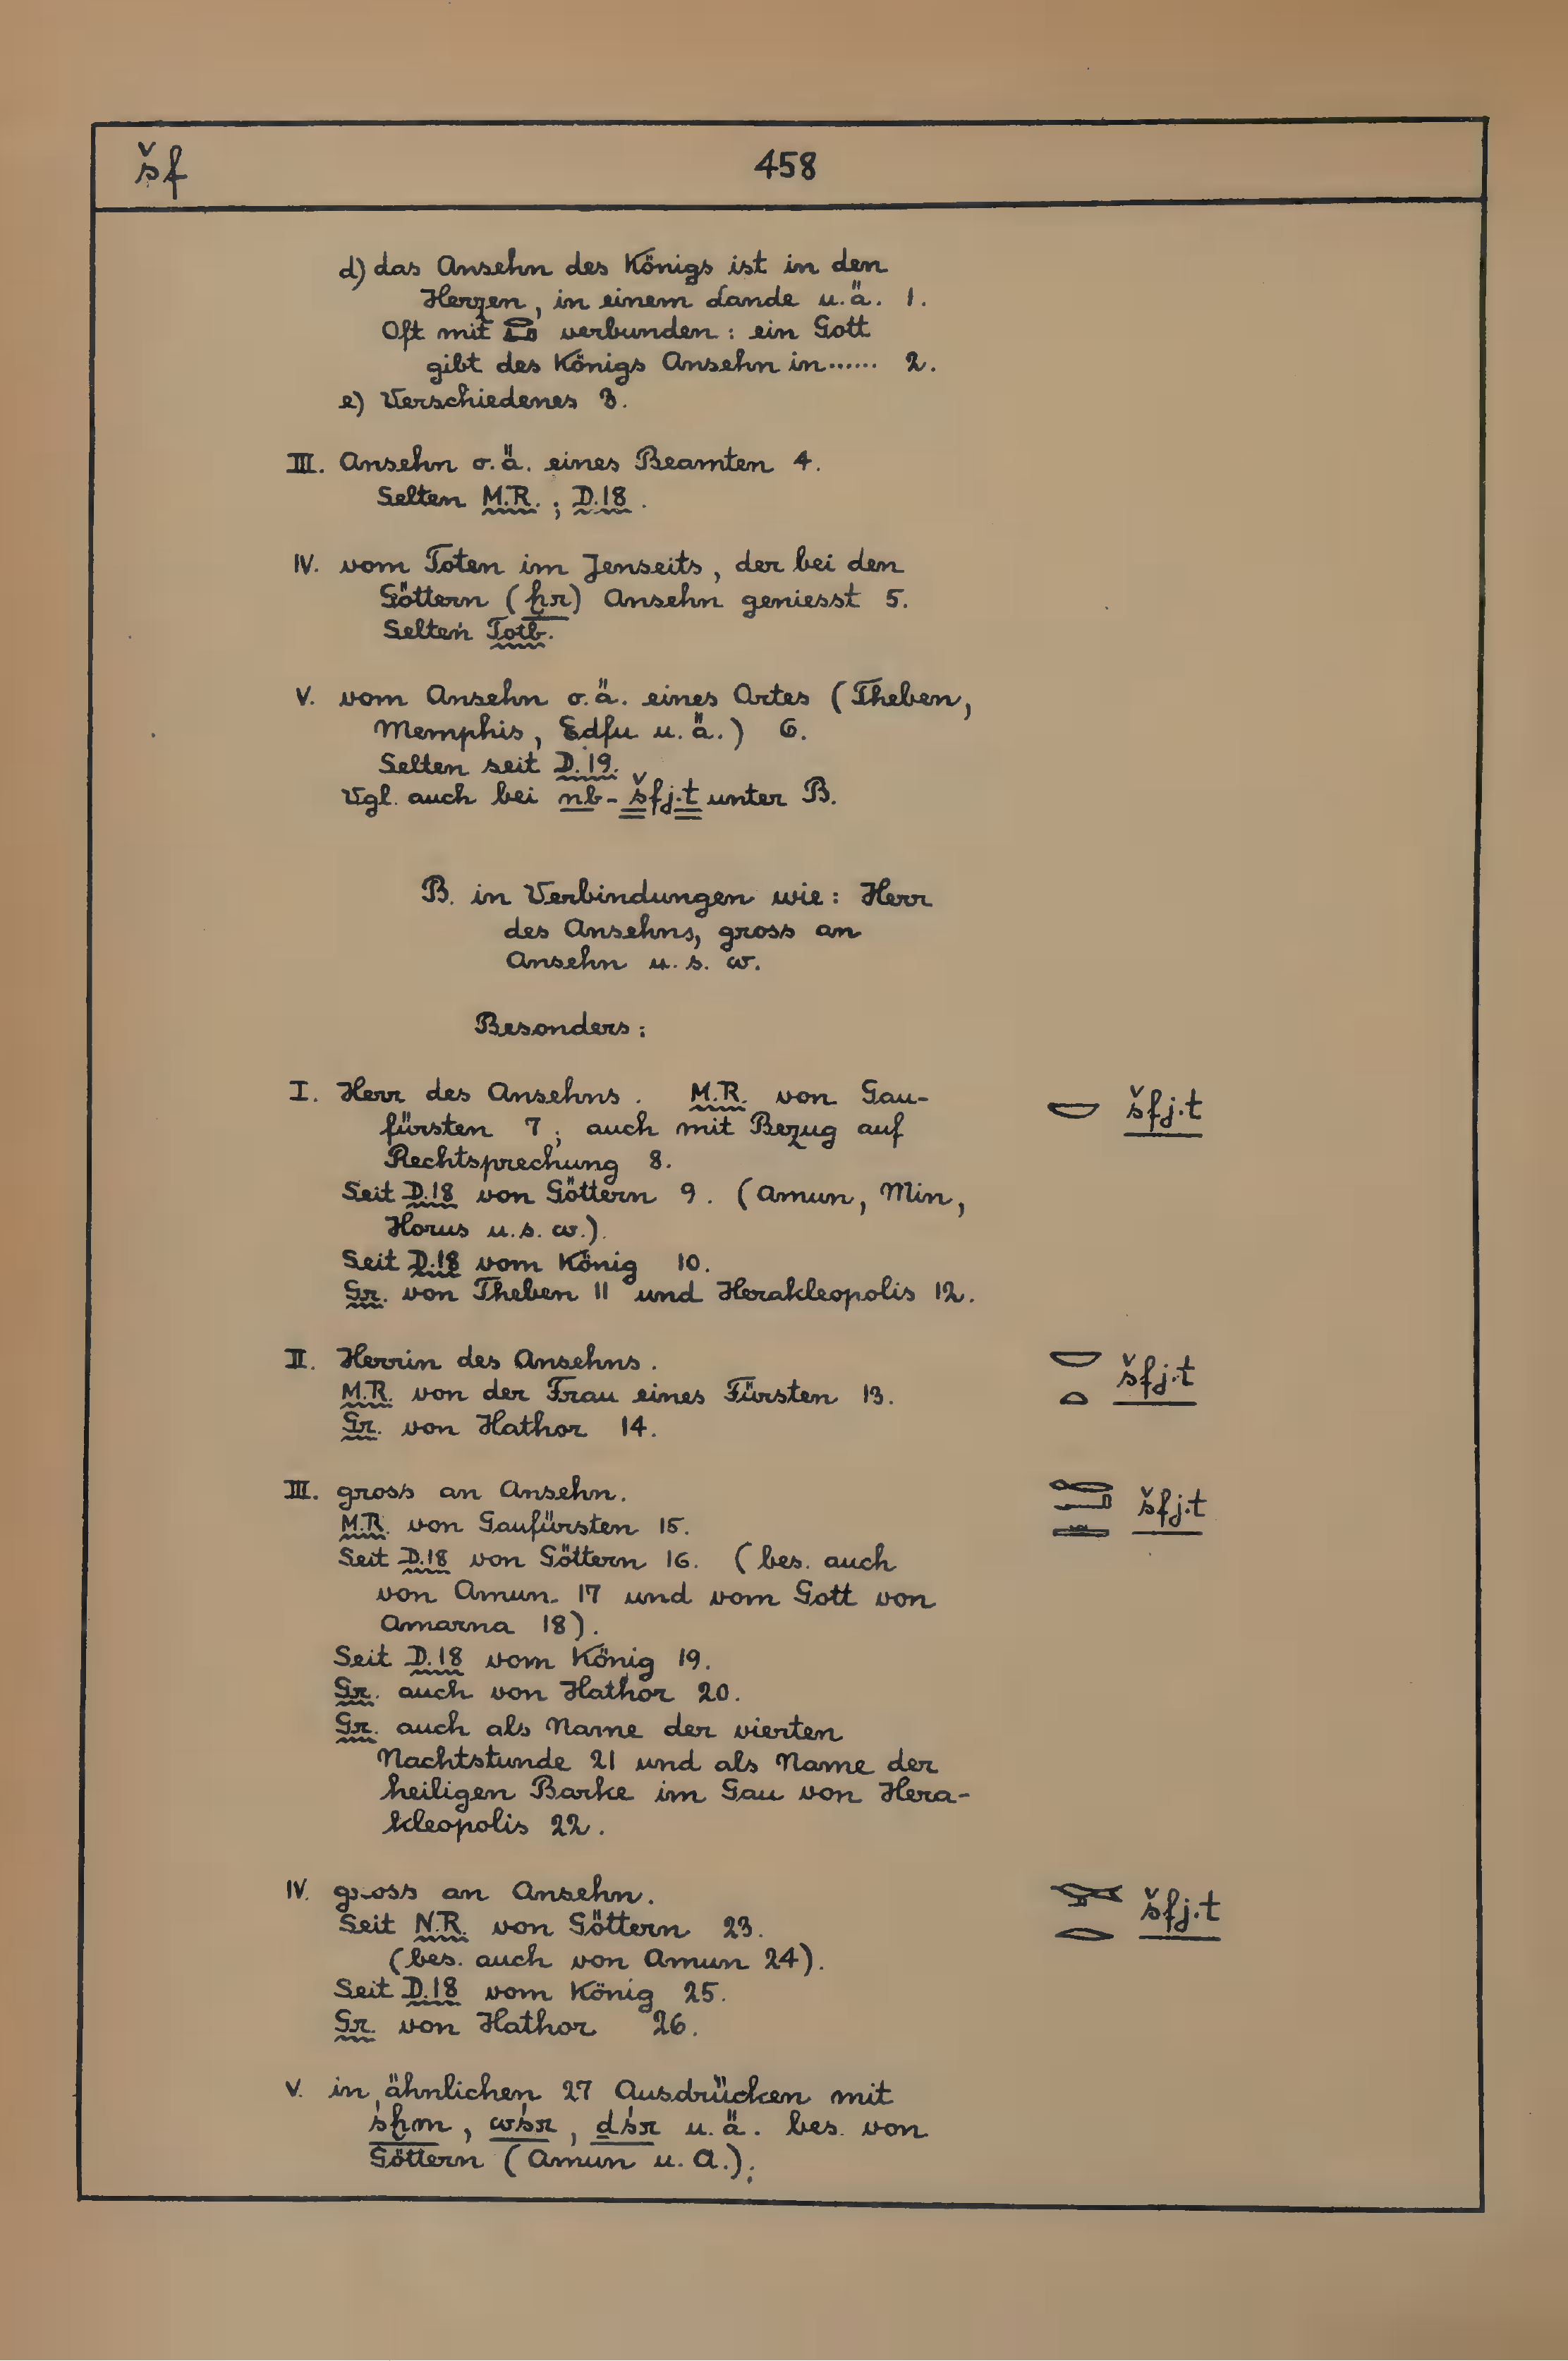 šf
458
d) das Ansehn des Königs ist in den
Herzen, in einem Lande u.ä. 1.
Oft mit 𓂋𓂞 verbunden: ein Gott
gibt des Königs Ansehn in...... 2.
e) Verschiedenes 3.
III. Ansehn o.ä. eines Beamten 4.
Selten M.R.; D.18.
IV. vom Toten im Jenseits, der bei den
Göttern (ḫr) Ansehn geniesst 5.
Selten Totb.
V. vom Ansehn o.ä. eines Ortes (Theben,
Memphis, Edfu u.ä.) 6.
Selten seit D.19.
Vgl. auch bei nb-šfj.t unter B.
B. in Verbindungen wie: Herr
des Ansehns, gross an
Ansehn u.s.w.
Besonders:
I. Herr des Ansehns. M.R. von Gau- 𓎟 šfj.t
fürsten 7; auch mit Bezug auf
Rechtsprechung 8.
Seit D.18 von Göttern 9. (Amun, Min,
Horus u.s.w.).
Seit D.18 vom König 10.
Gr. von Theben 11 und Herakleopolis 12.
II. Herrin des Ansehns. 𓎟𓏏 šfj.t
M.R. von der Frau eines Fürsten 13.
Gr. von Hathor 14.
III. gross an Ansehn. 𓉻𓂝𓏛 šfj.t
M.R. von Gaufürsten 15.
Seit D.18 von Göttern 16. (bes. auch
von Amun 17 und vom Gott von
Amarna 18).
Seit D.18 vom König 19.
Gr. auch von Hathor 20.
Gr. auch als Name der vierten
Nachtstunde 21 und als Name der
heiligen Barke im Gau von Hera-
kleopolis 22.
IV. gross an Ansehn. 𓅨𓂋 šfj.t
Seit N.R. von Göttern 23.
(bes. auch von Amun 24).
Seit D.18 vom König 25.
Gr. von Hathor 26.
V. in ähnlichen 27 Ausdrücken mit
śḫm, wśr, ḏśr u.ä. bes. von
Göttern (Amun u. A.);